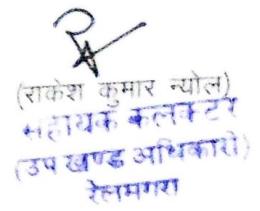 (राकेश कुमार न्योल)
सहायक कलक्टर
(उप खण्ड अधिकारी)
रेलमगरा